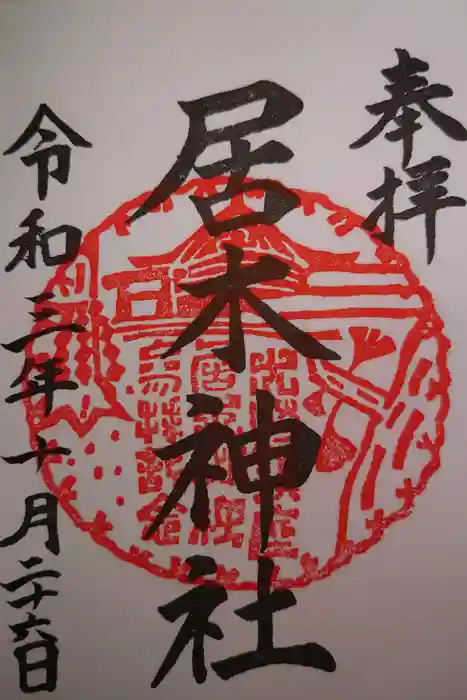 奉拝
居木神社
令和三年十月二十六日